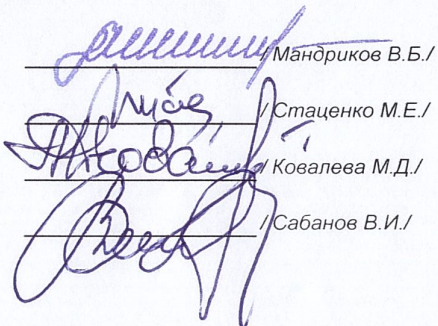 / Мандриков В.Б./
/ Стаценко М.Е./
/ Ковалева М.Д./
/ Сабанов В.И./